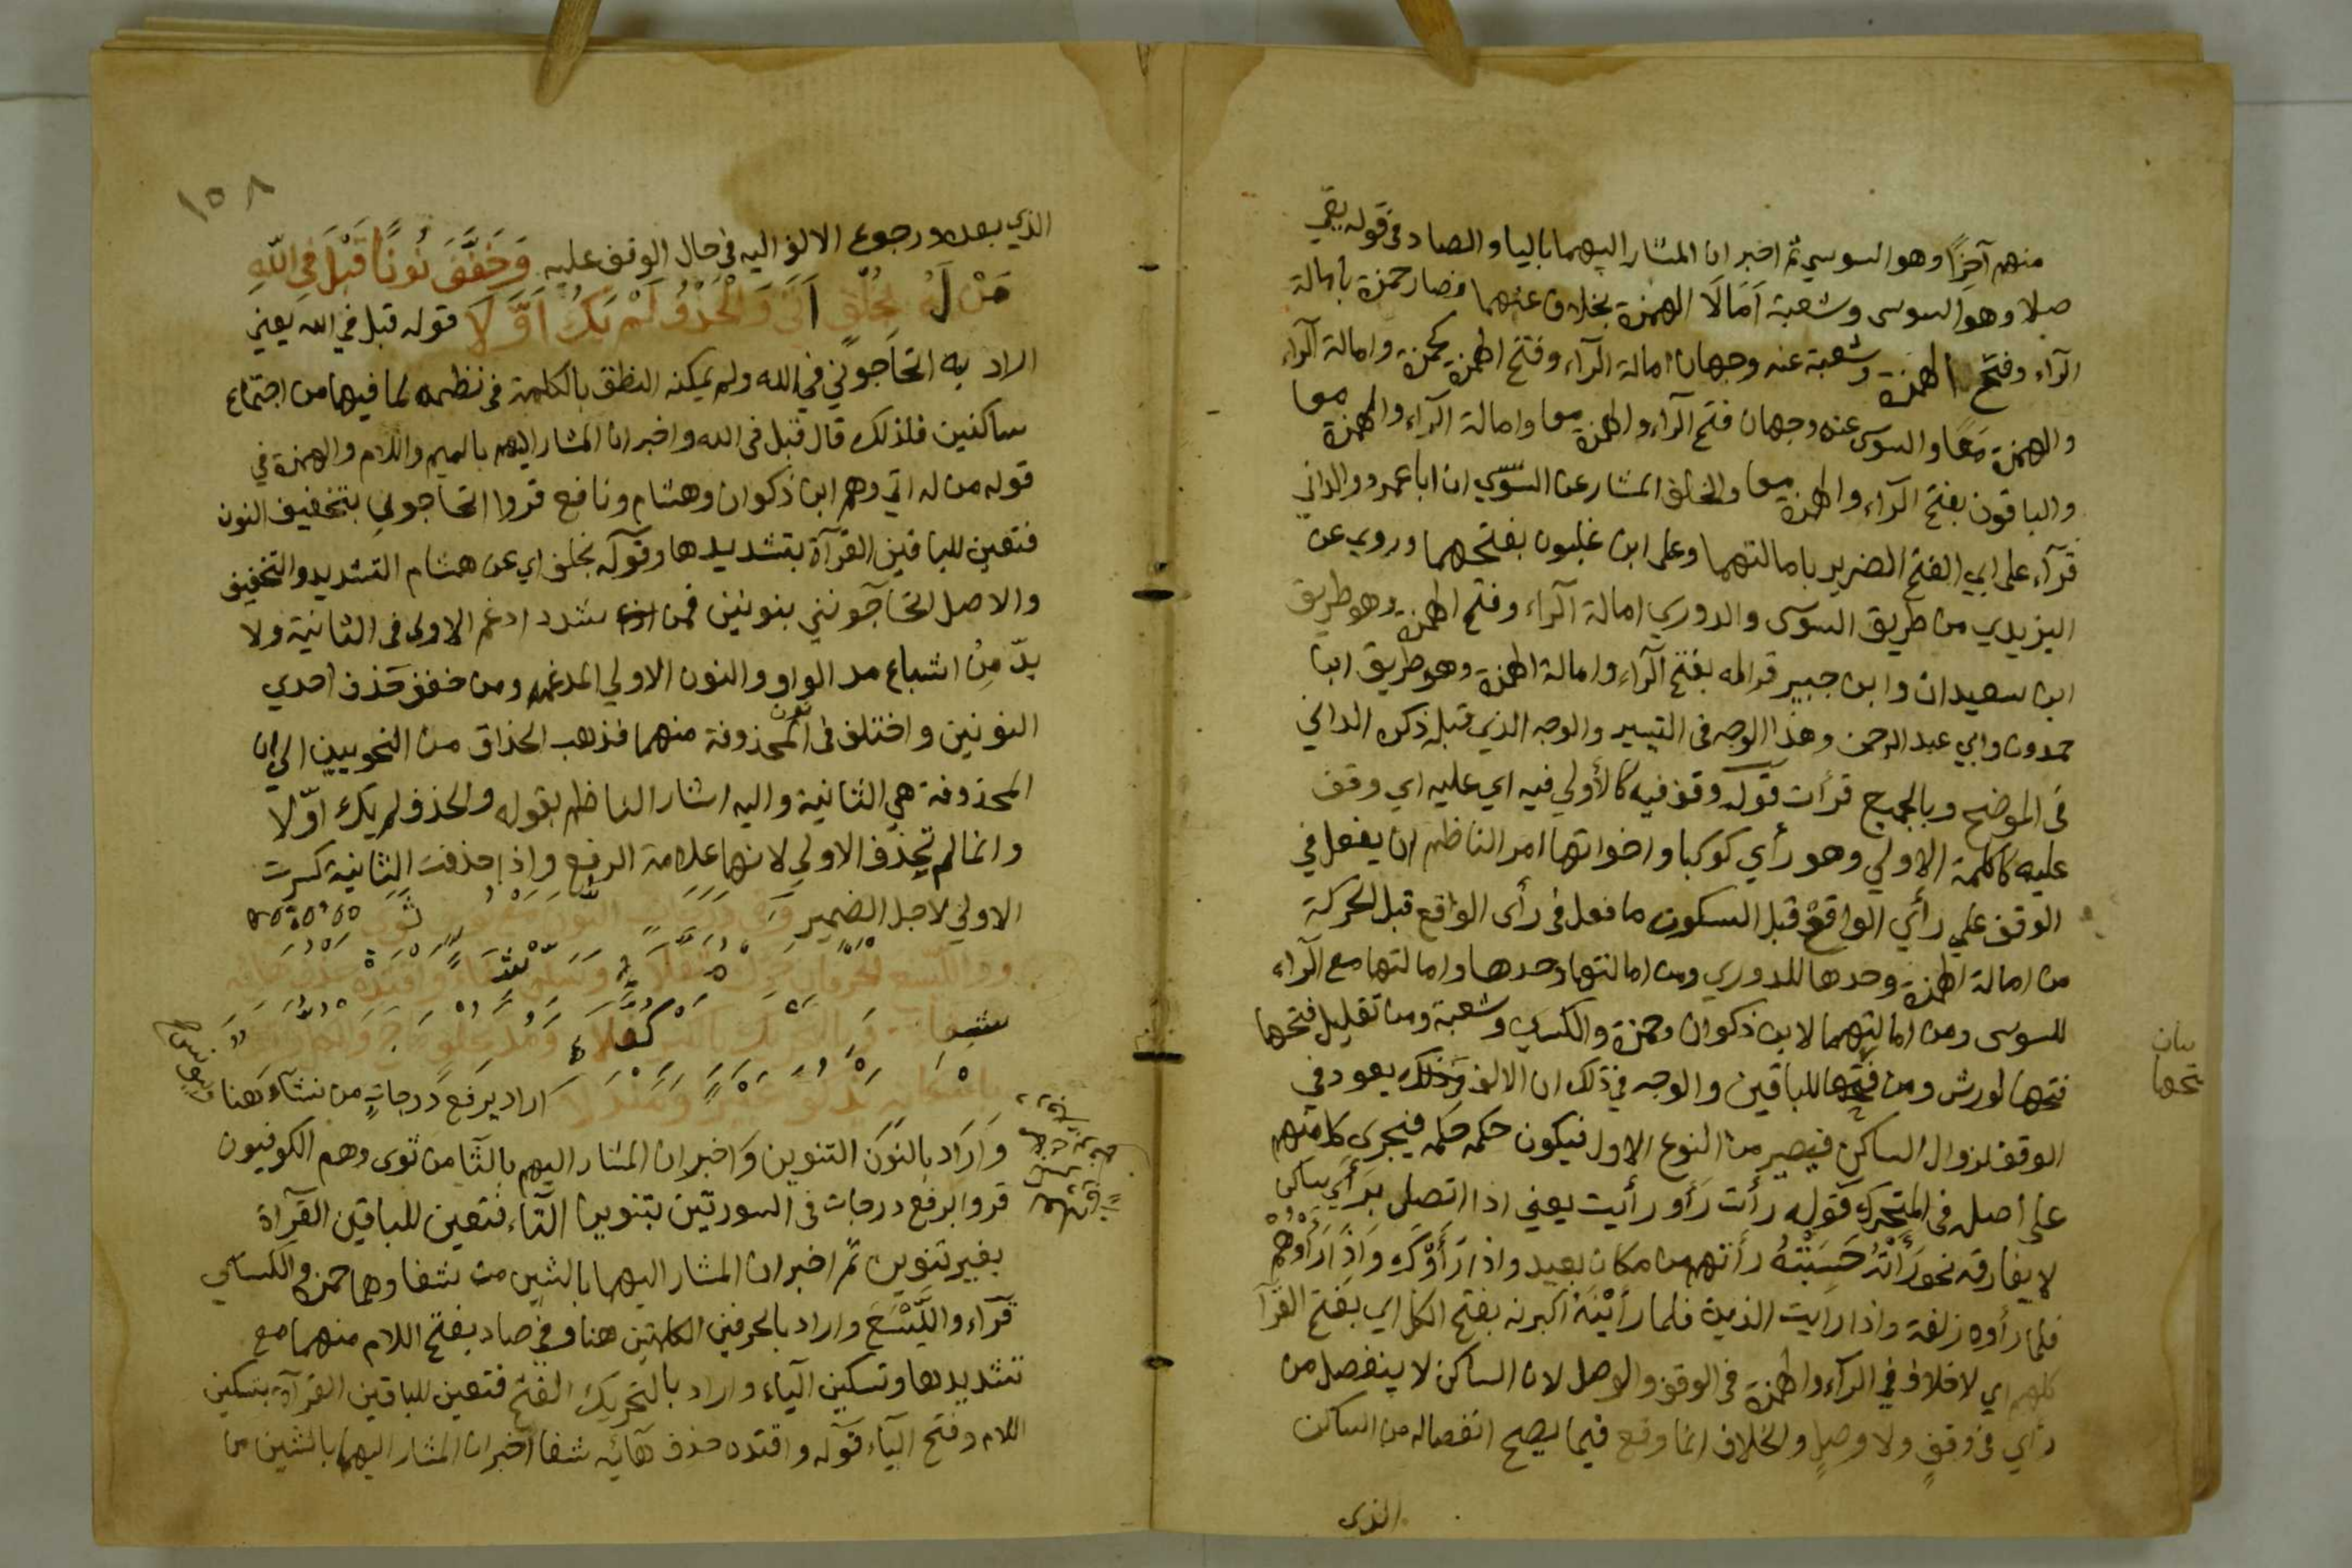 منهم آخرًا وهو السوسي ثم اخبر ان المشار اليهما باليا والصاد في قوله يقي
صلا وهو السوسى وشعبة اَمَالَا الهمزة بخلاف عنهما فصار حمزة بامالة
الرآء وفتح الهمزة وشعبة عنه وجهان امالة الرآء وفتح الهمزة كحمزة وامالة الرآء
والهمزة مَعًا والسوسى عنه وجهان فتح الرآء والهمزة معا وامالة الرآء والهمزة معا
والباقون بفتح الرآء والهمزة معا والخلف المشار عن السّوسي ان ابا عمرو والداني
قرآء على ابي الفتح الضرير بامالتهما وعلى ابن غلبون بفتحهما وروي عن
اليزيدي من طريق السوسى والدوري امالة الرآء وفتح الهمزة وهو طريق
ابن سعيدان وابن جبير قرا له بفتح الرآء وامالة الهمزة وهو طريق ابن
حمدون وابي عبد الرحمن وهذا الوجه في التيسير والوجه الذي قبله ذكره الداني
في الموضح وبالجميع قرأت قوله وقف فيه كالأولي فيه اي عليه اي وقف
عليه كالكلمة الاولي وهو رأي كوكبا واخواتها امر الناظم ان يفعل في
الوقف علي رأي الواقع قبل السكون ما فعل في رأى الواقع قبل الحركة
من امالة الهمزة وحدها للدوري ومن امالتها وحدها وامالتها مع الرآء
للسوسى ومن امالتهما لابن ذكوان وحمزة والكسائي وشعبة ومن تقليل فتحها
فتحها لورش ومن فتحها للباقين والوجه في ذلك ان الالف وذلك يعود في
الوقف لزوال الساكن فيصير من النوع الاول فيكون حكمه حكمه فيجري كل منهم
على أصله في المتحرك قوله رأت رَأَو رأيت يعني اذا اتصل برَأَي ساكن
لا يفارقه نحو رَأَتْهُ حَسِبَتْهُ رأتهم من مكان بعيد واذا رَأَوْكَ وَاِذَا رَأَوْهُمْ
فلما رأوه زلفة واذا رايت الذين فلما رَأَيْنَهُ اكبرنه بفتح الكل اي بفتح القرآ
كلهم اي لا خلاف في الرآء والهمزة في الوقف والوصل لان الساكن لا ينفصل من
رأي في وقفٍ ولا وصلٍ والخلاف انما وقع فيما يصح انفصاله من الساكن
الذى
بيان
فتحها
١٥٨
الذي بعده ورجوع الالف اليه في حال الوقف عليه وَخَفَّفَ نُونًا قَبْلَ فِي اللّٰهِ
مَنْ لَهُ بِخُلْفٍ اَتَى وَالْحَذْفُ لَمْ يَكُ اَوَّلَا قوله قبل في الله يعني
اراد به اتحاجوني في الله ولم يمكنه النطق بالكلمة في نظمه لما فيها من اجتماع
ساكنين فلذلك قال قبل في الله واخبر ان المشار اليهم بالميم واللام والهمزة في
قوله من له اتي وهم ابن ذكوان وهشام ونافع قروا اتحاجوني بتخفيف النون
فتعين للباقين القرآة بتشديدها وقوله بخلف اي عن هشام التشديد والتخفيف
والاصل اتحاجونني بنونين فمن شدد ادغم الاولى في الثانية ولا
بدّ مِن اشباع مد الواو والنون الاولي المدغمة ومن خفف حذف احدي
النونين واختلف في النون المحذوفة منهما فذهب الحذاق من النحويين الي ان
المحذوفة هي الثانية واليه اشار الناظم بقوله والحذف لم يك اوّلا
وانما لم تُحذف الاولي لانها علامة الرفع واذا حذفت الثانية كسرت
الاولي لاجل الضمير وَفِي دَرَجَاتِ النُّونُ مَعْ يُوسُفٍ ثَوَى
وَوَالَّيْسَعَ الْحَرْفَانِ حَرِّكْ مُثَقِّلَا وَسَكِّنْ شِفَاءً وَاقْتَدِهْ حَذْفُ هَائِهِ
شِفَاءً وَبِالتَّحْرِيكِ بِالْكَسْرِ كُفِّلَا وَمُدَّ بِخُلْفٍ مَاجَ وَالْكُلُّ وَاقِفٌ
بِاِسْكَانِهِ يَذْكُو عَبِيرًا وَمَنْدَلَا اراد يرفع دَرجاتٍ من نشآء هَنا
وَاَرَادَ بالنون التنوين وَاخبر ان المشار اليهم بالثا من ثوى وهم الكوفيون
قروا برفع درجات في السورتين بتنوين التّاء فتعين للباقين القرآة
بغير تنوين ثم اخبر ان المشار اليهما بالشين من شفا وهما حمزة والكسائي
قرآء والَّيْسَعَ واراد بالحرفين الكلمتين هنا وفي صاد بفتح اللام منهما مع
تشديدها وتسكين الياء واراد بالتحريك الفتح فتعين للباقين القرآة بتسكين
اللام وفتح الياء قوله واقتده حذف هآئه شفا اخبر ان المشار اليهما بالشين من